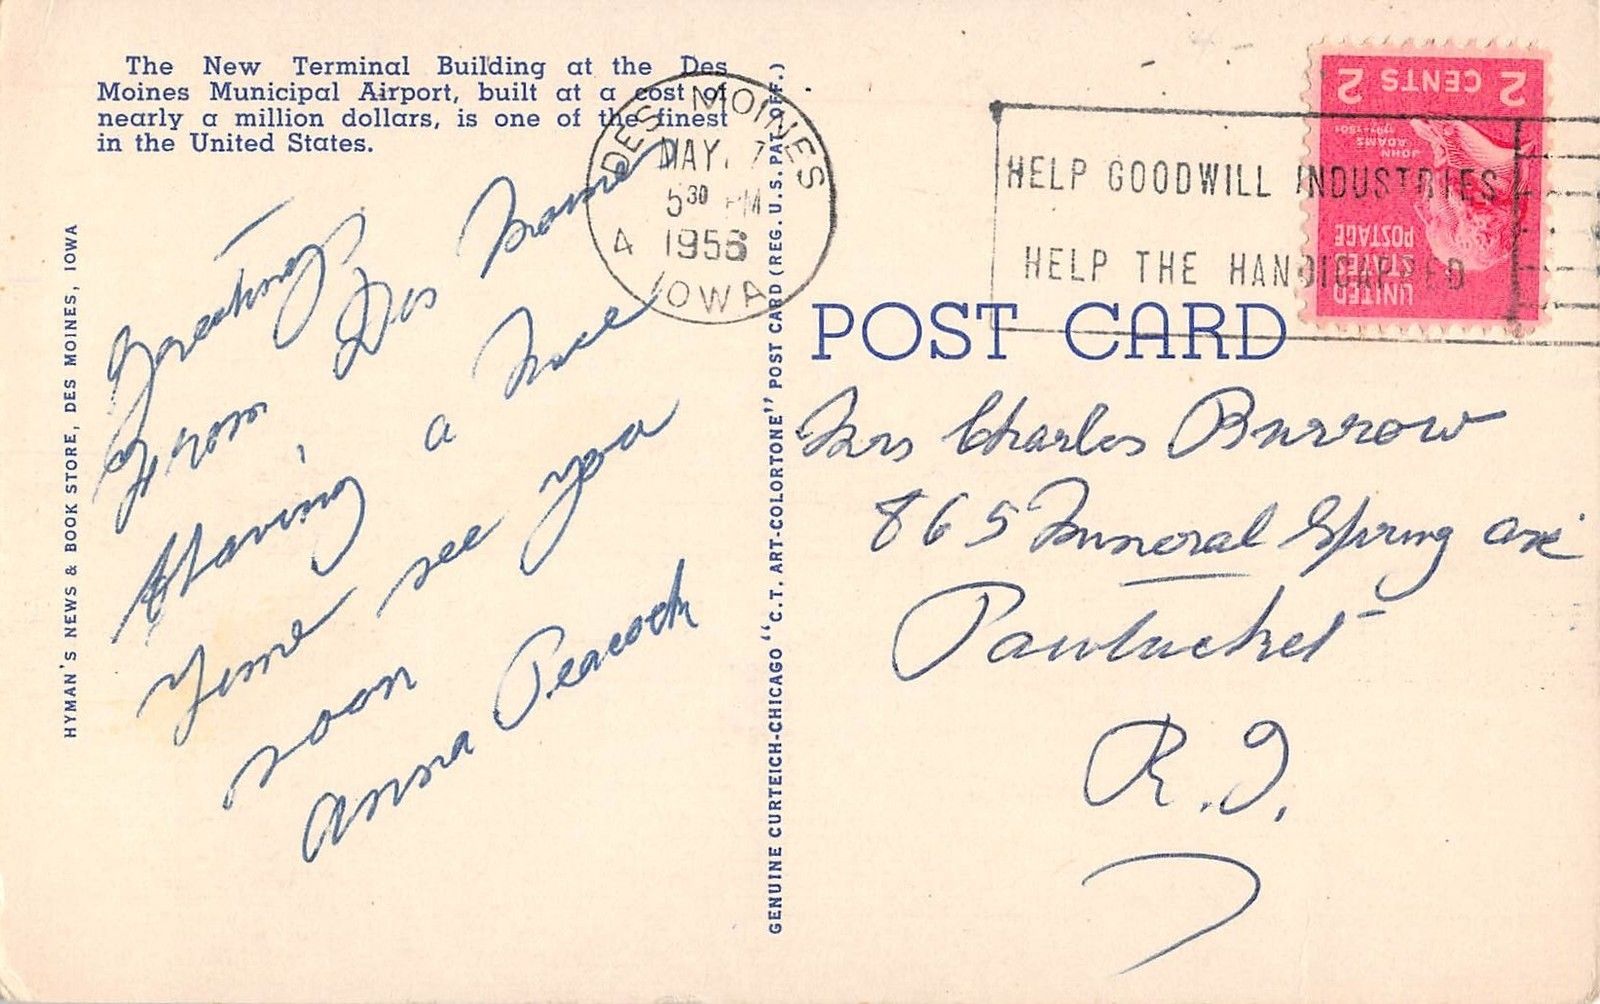 The New Terminal Building at the Des
Moines Municipal Airport, built at a cost of
nearly a million dollars, is one of the finest
in the United States.
HYMAN'S NEWS & BOOK STORE, DES MOINES, IOWA
Greetings
from Des Moines
Having a nice
Time see you
soon
Anna Peacock
GENUINE CURTEICH-CHICAGO "C.T. ART-COLORTONE" POST CARD (REG. U.S. PAT. OFF.)
DES MOINES
MAY 7
5 30 PM
1956
IOWA
HELP GOODWILL INDUSTRIES
HELP THE HANDICAPPED
2 CENTS 2
JOHN
ADAMS
1797-1801
UNITED
STATES
POSTAGE
POST CARD
Mrs Charles Burrow
865 Muneral Spring ave
Pawtucket
R.I.